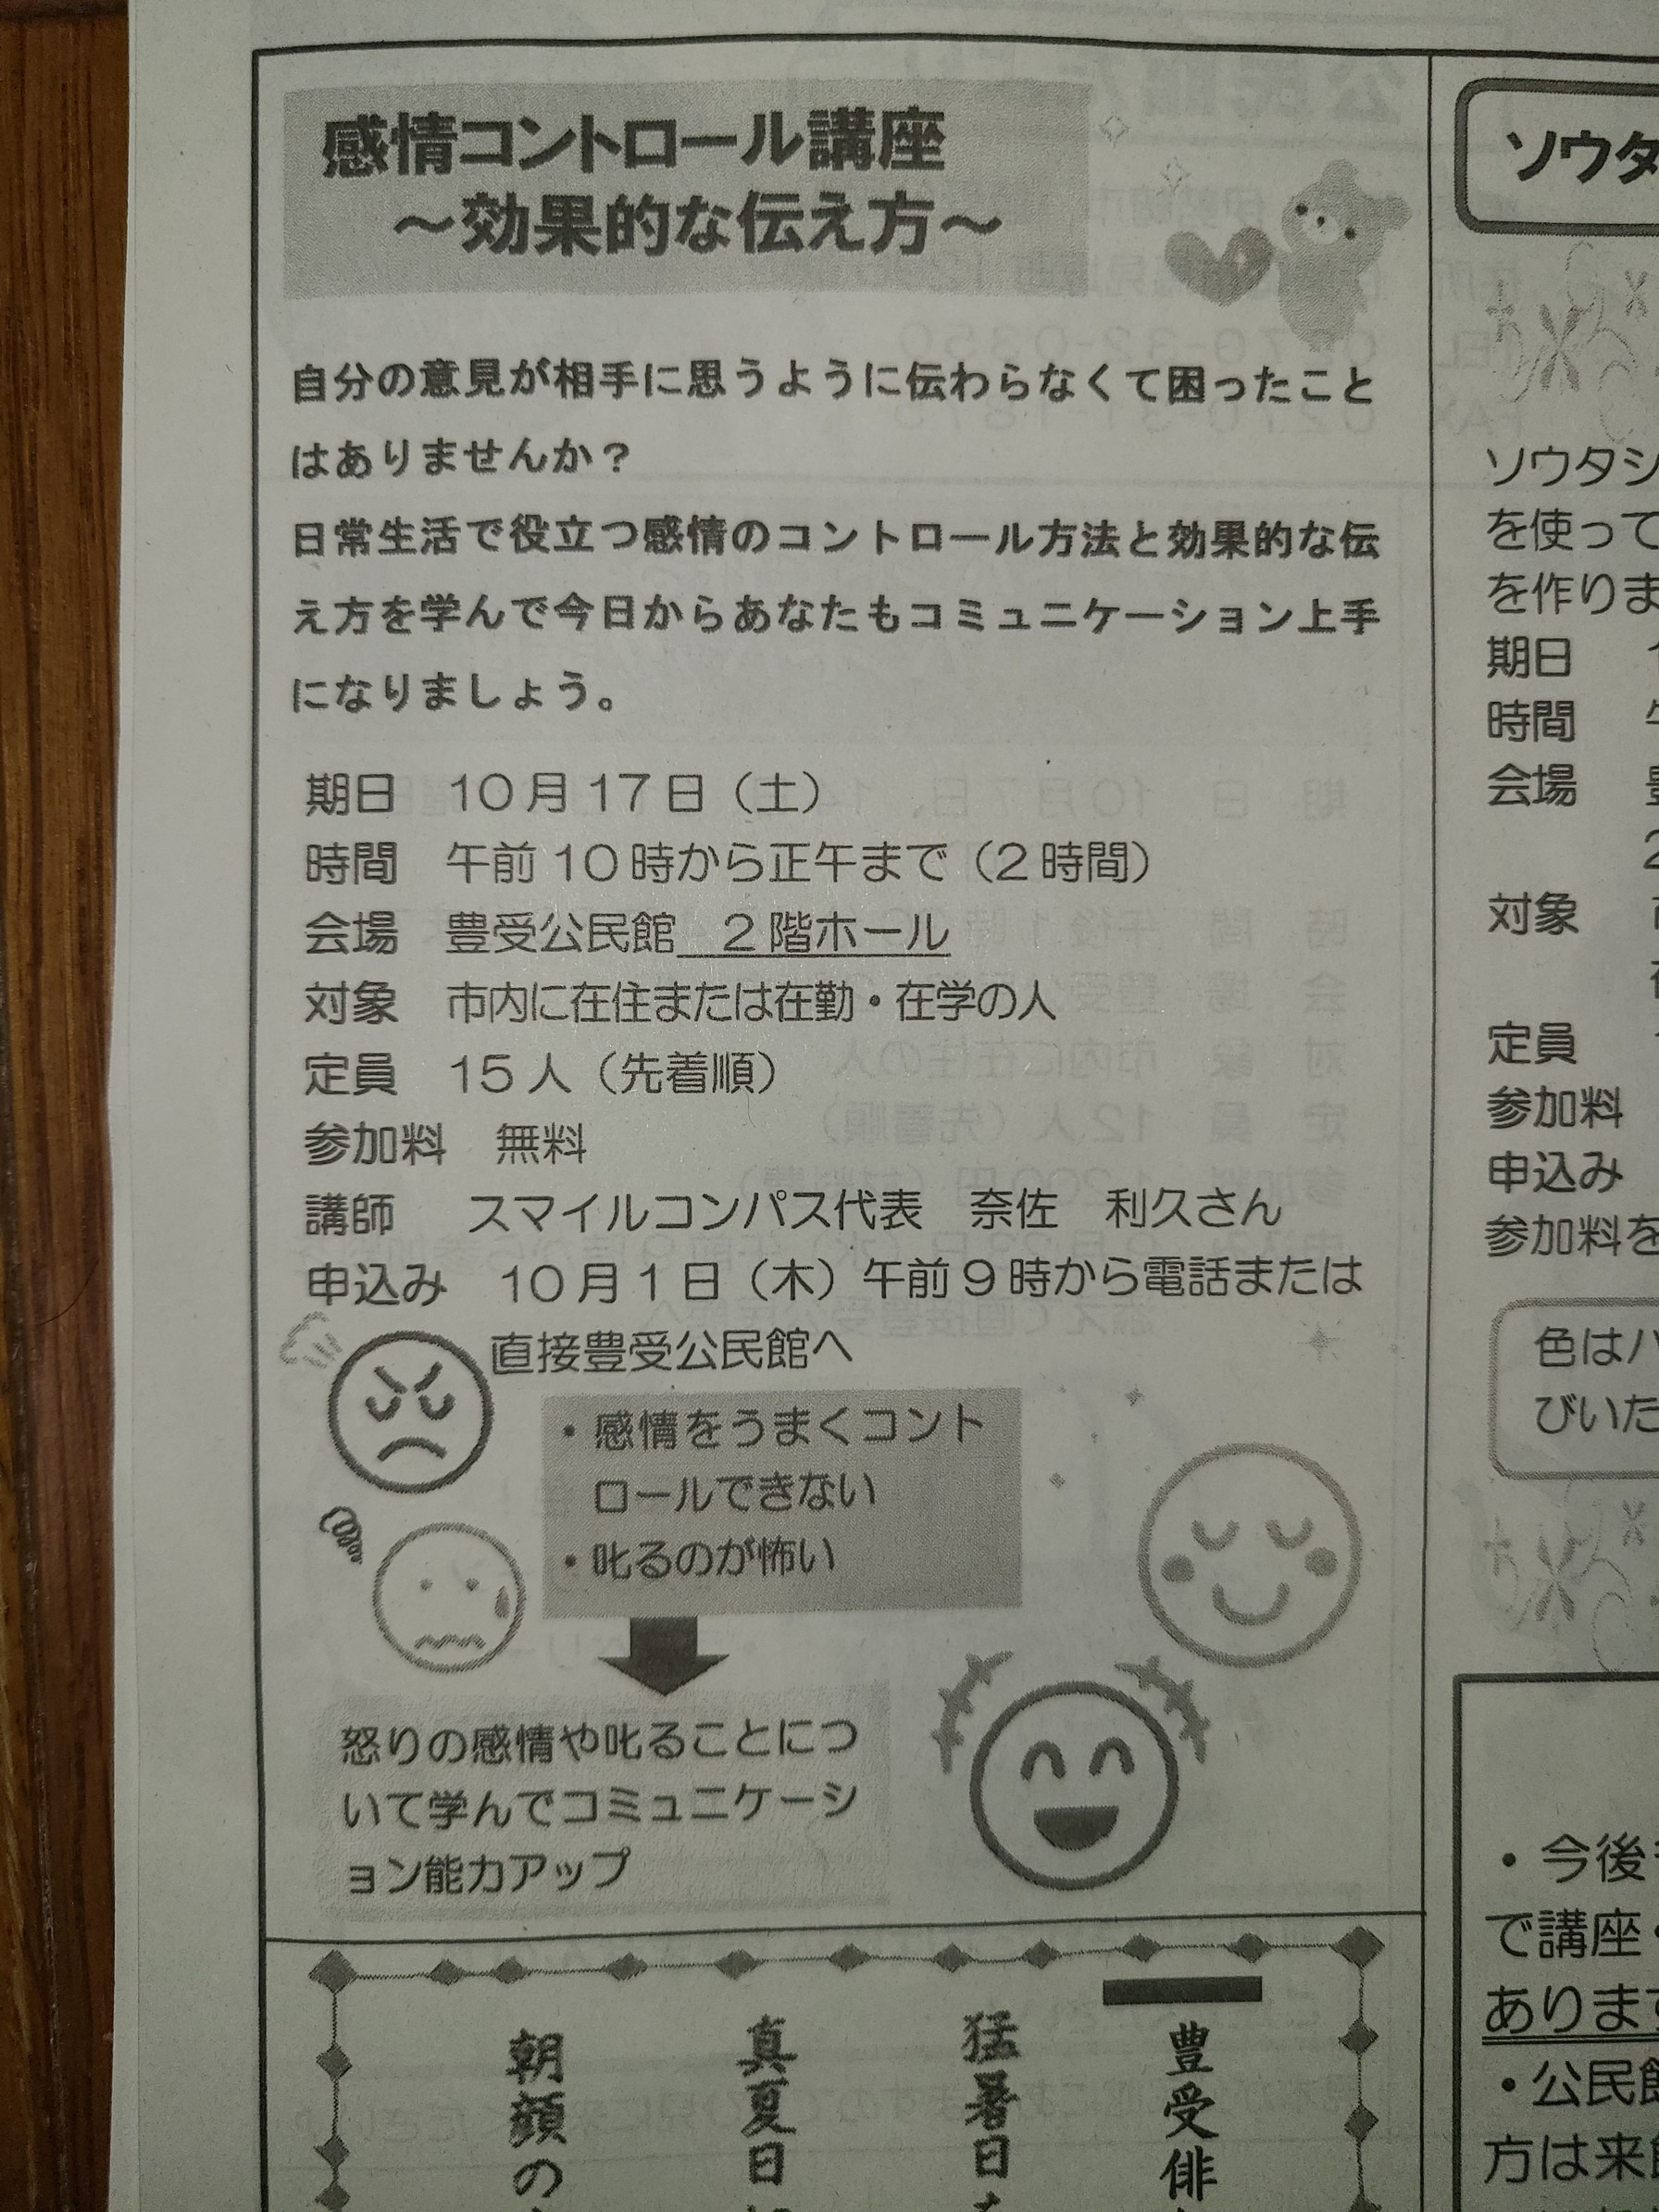 感情コントロール講座
～効果的な伝え方～
自分の意見が相手に思うように伝わらなくて困ったこと
はありませんか？
日常生活で役立つ感情のコントロール方法と効果的な伝
え方を学んで今日からあなたもコミュニケーション上手
になりましょう。
期日　10月17日（土）
時間　午前10時から正午まで（2時間）
会場　豊受公民館　2階ホール
対象　市内に在住または在勤・在学の人
定員　15人（先着順）
参加料　無料
講師　スマイルコンパス代表　奈佐　利久さん
申込み　10月1日（木）午前9時から電話または
直接豊受公民館へ
・感情をうまくコント
ロールできない
・叱るのが怖い
怒りの感情や叱ることにつ
いて学んでコミュニケーシ
ョン能力アップ
豊受俳
猛暑日
真夏日
朝顔の
ソウタ
ソウタシ
を使って
を作りま
期日
時間
会場
2
対象
定員
参加料
申込み
参加料を
色はハ
びいた
・今後
で講座・
あります
・公民館
方は来館